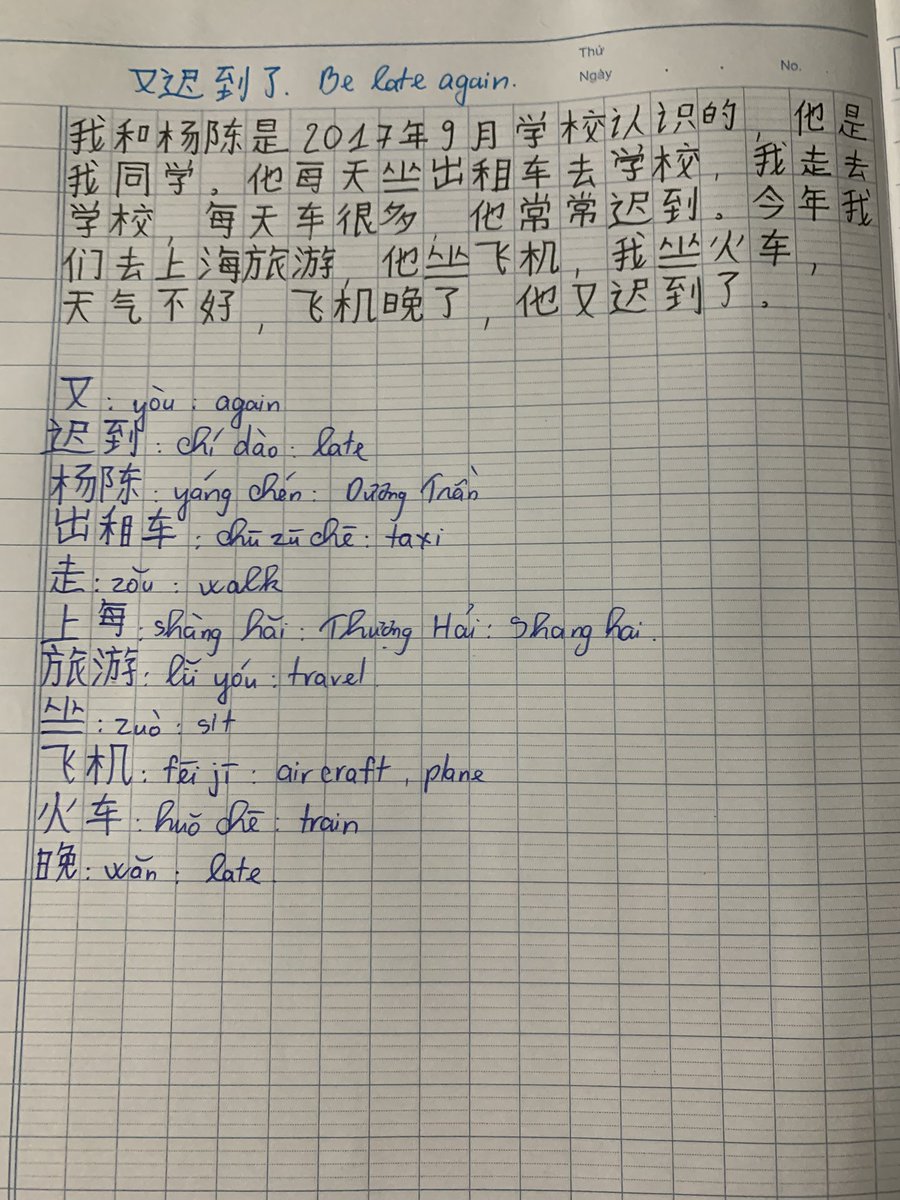 Thứ
Ngày . . No.
又迟到了. Be late again.
我和杨陈是2017年9月学校认识的,他是
我同学。他每天坐出租车去学校,我走去
学校,每天车很多,他常常迟到。今年我
们去上海旅游,他坐飞机,我坐火车,
天气不好,飞机晚了,他又迟到了。
又: yòu: again
迟到: chí dào: late
杨陈: yáng chén: Dương Trần
出租车: chū zū chē: taxi
走: zǒu: walk
上每: shàng hǎi: Thượng Hải: Shang hai.
旅游: lǚ yóu: travel.
坐: zuò: sit
飞机: fēi jī: air craft, plane
火车: huǒ chē: train
晚: wǎn: late.